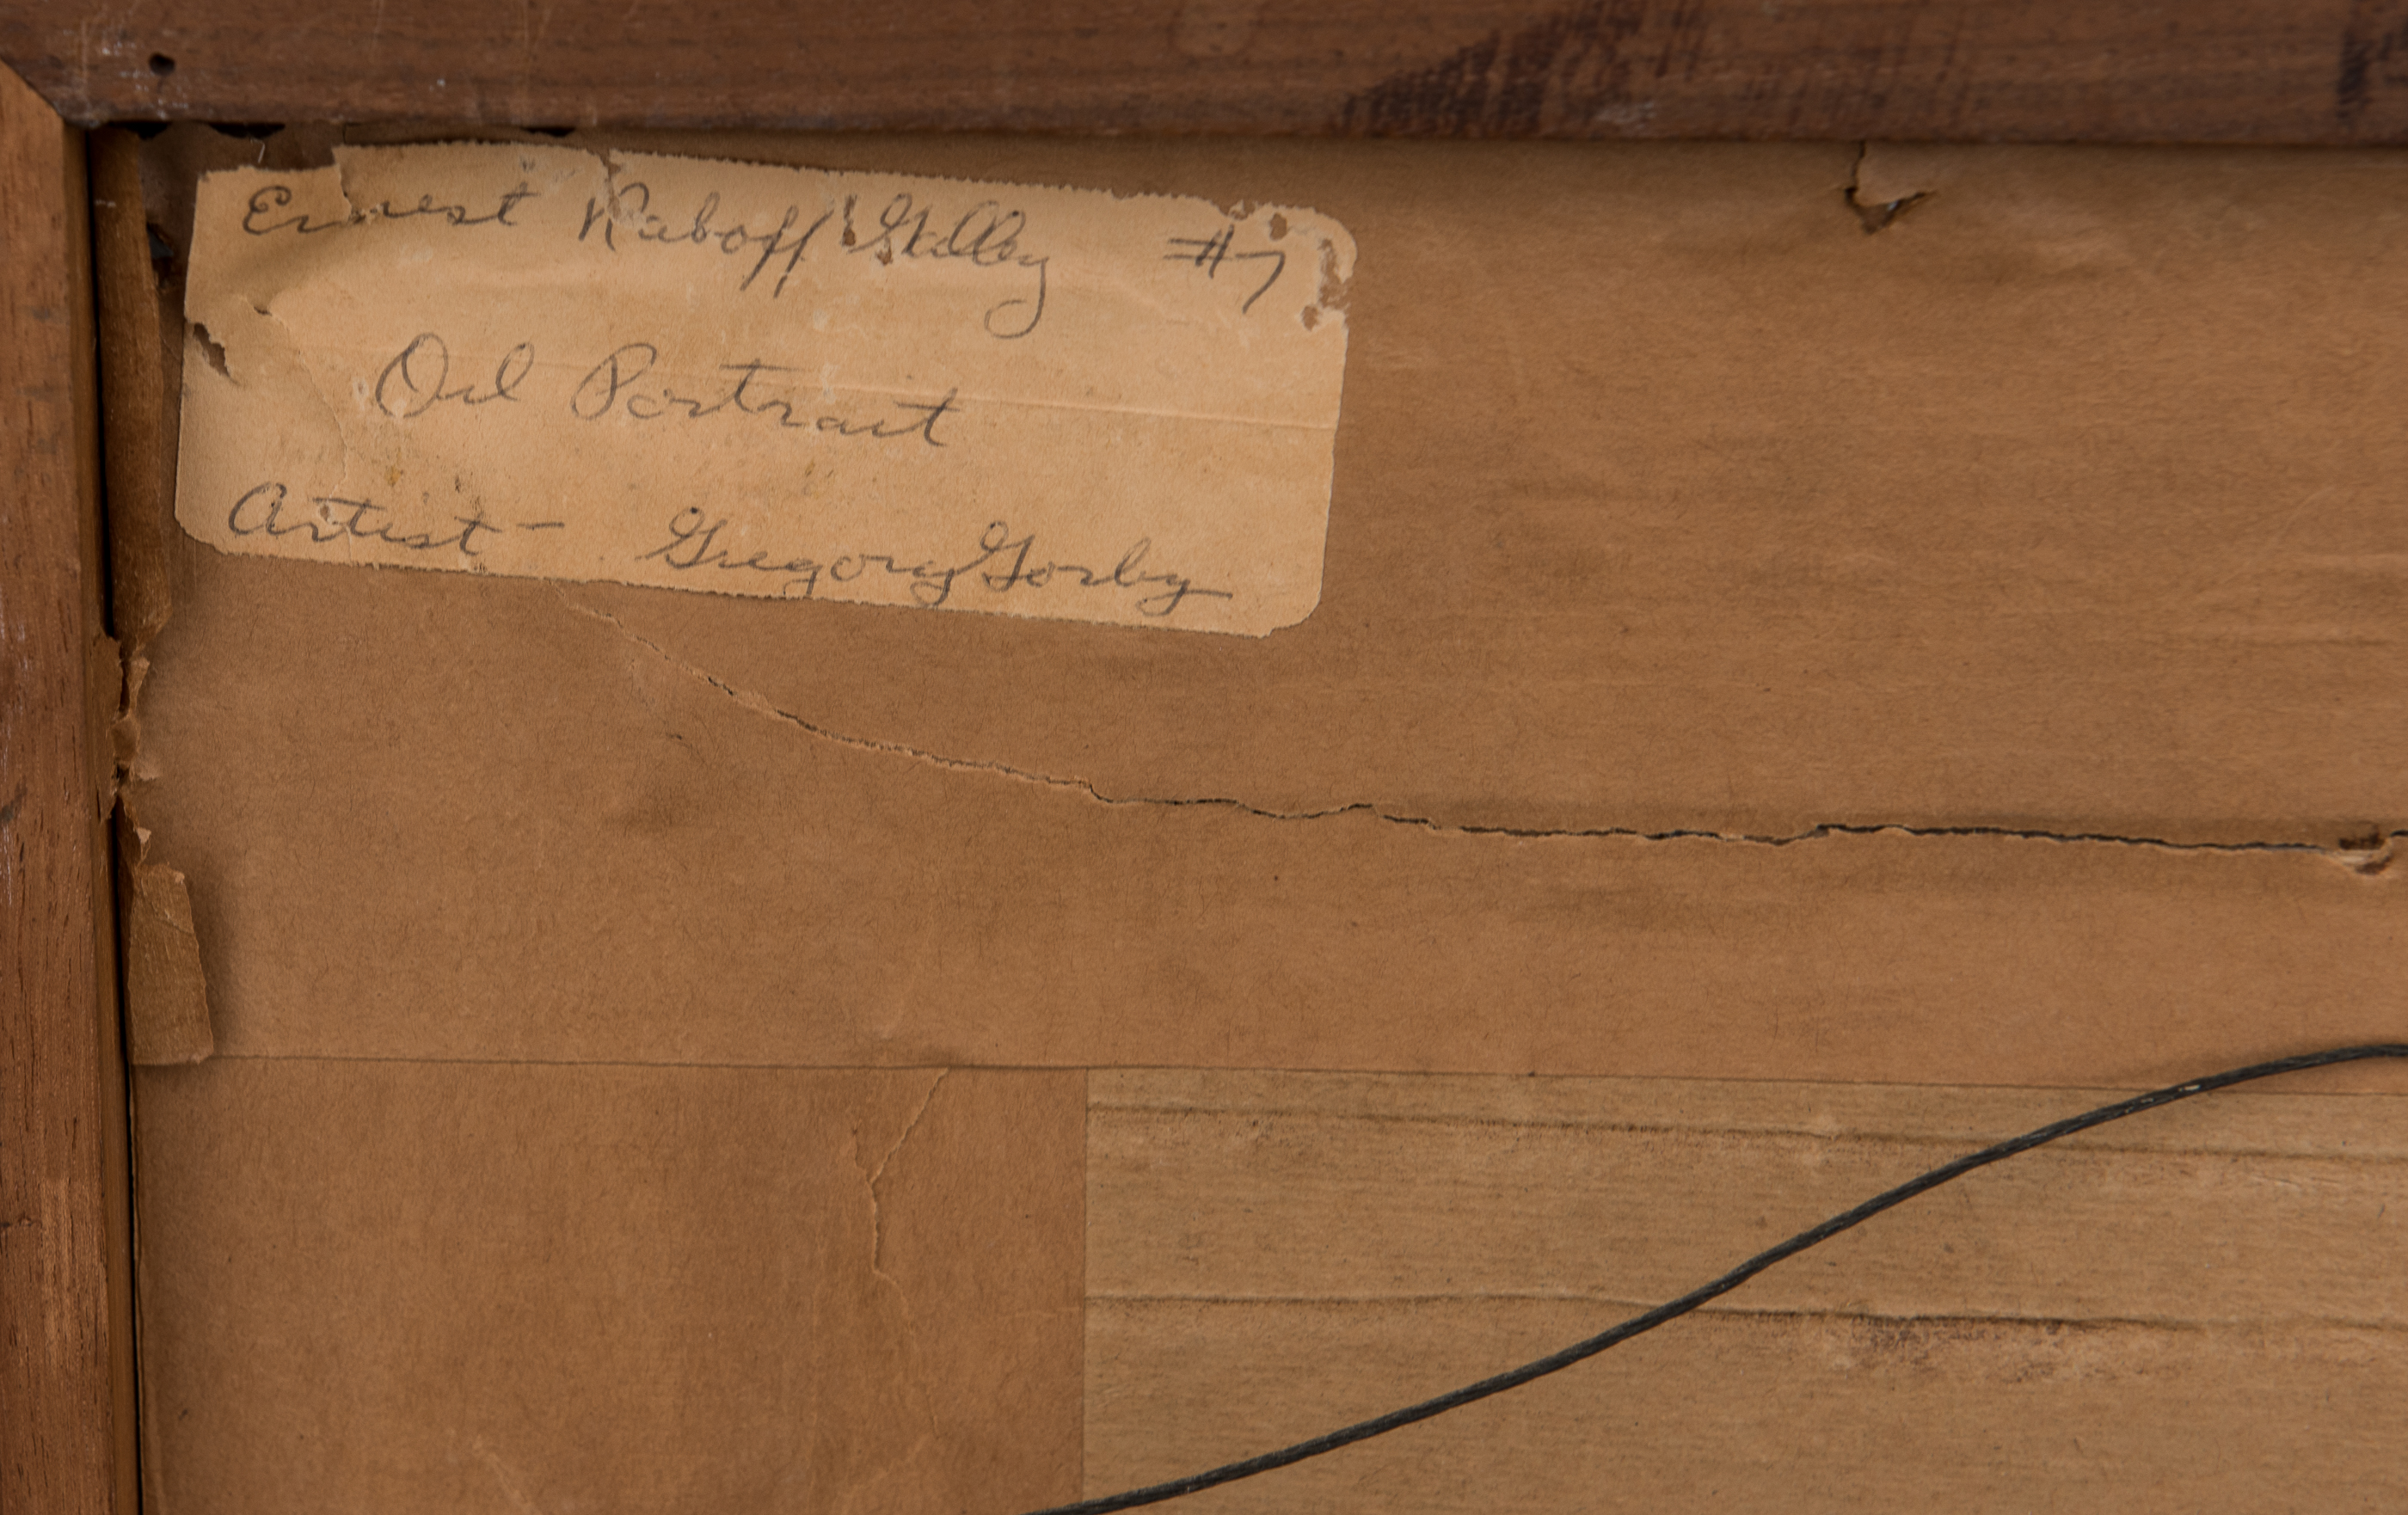 Ernest Raboff Gallery #7
Oil Portrait
Artist - Gregory Gorby